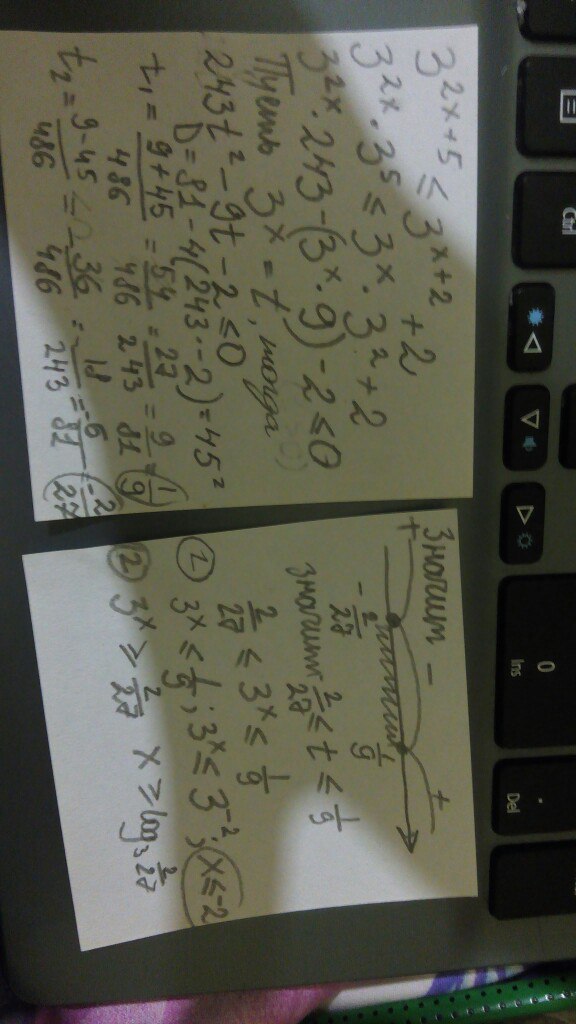 3^{2x+5} ≤ 3^{x+2} + 2
3^{2x} · 3^5 ≤ 3^x · 3^2 + 2
3^{2x} · 243 - (3^x · 9) - 2 ≤ 0
Пусть 3^x = t, тогда
243t² - 9t - 2 ≤ 0
D = 81 - 4(243 · -2) = 45²
t₁ = \frac{9+45}{486} = \frac{54}{486} = \frac{27}{243} = \frac{9}{81} = \frac{1}{9}
t₂ = \frac{9-45}{486} = -\frac{36}{486} = -\frac{18}{243} = \frac{-6}{81} = \frac{-2}{27}
Значит -
+ - \frac{2}{27} \frac{1}{9} +
значит \frac{2}{27} ≤ t ≤ \frac{1}{9}
\frac{2}{27} ≤ 3^x ≤ \frac{1}{9}
① 3^x ≤ \frac{1}{9}; 3^x ≤ 3^{-2}; x ≤ -2
② 3^x ≥ \frac{2}{27} x ≥ log₃ \frac{2}{27}
Ctrl
0
Ins
.
Del